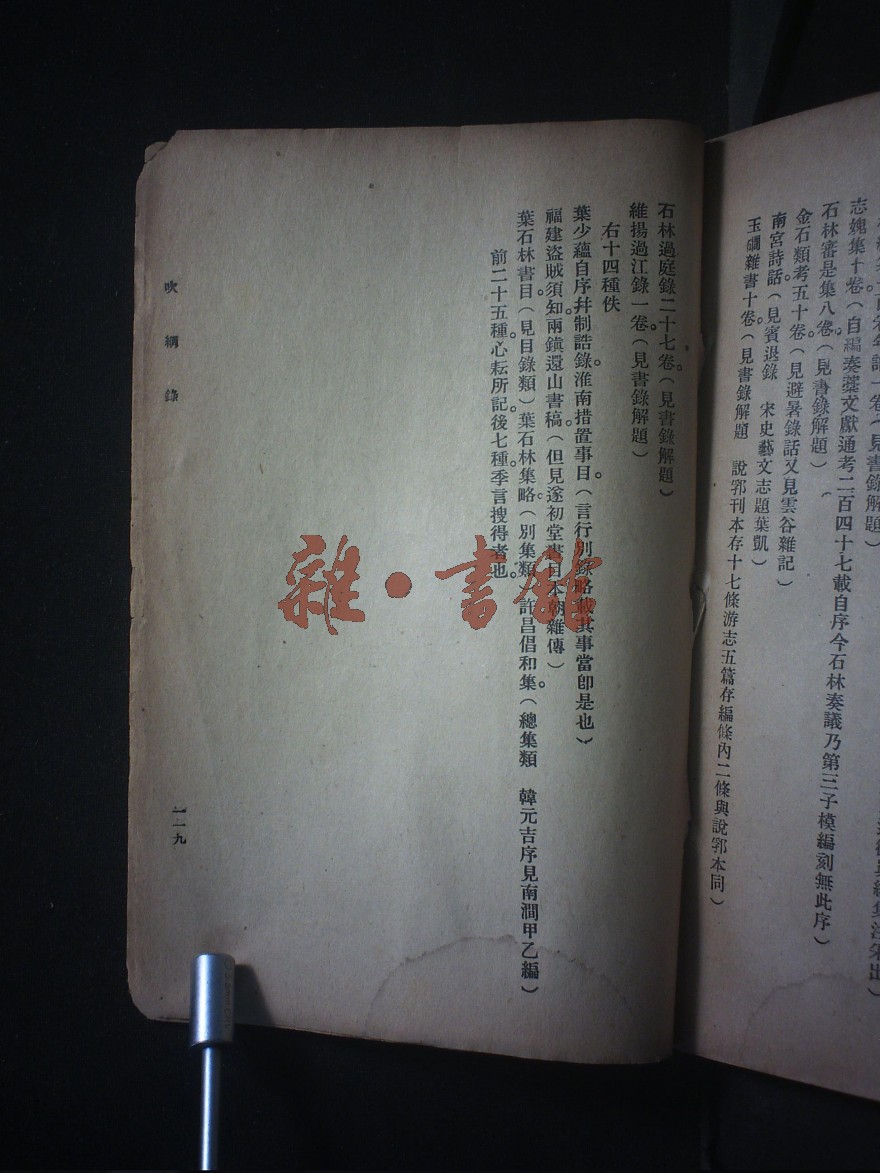 志媿集十卷(自編奏槀文獻通考二百四十七載自序今石林奏議乃第三子模編刻無此序)
石林審是集八卷。(見書錄解題)
金石類考五十卷。(見避暑錄話又見雲谷雜記)
南宮詩話(見賓退錄 宋史藝文志題葉凱)
玉㵎雜書十卷。(見書錄解題 說郛刊本存十七條游志五篇存編條內二條與說郛本同)
石林過庭錄二十七卷。(見書錄解題)
維揚過江錄一卷。(見書錄解題)
右十四種佚
葉少蘊自序幷制誥錄。淮南措置事目。(言行別錄略載其事當卽是也)
福建盜賊須知。兩鎭還山書稿。(但見遂初堂書目本朝雜傳)
葉石林書目。(見目錄類)葉石林集略。(別集類)許昌倡和集。(總集類 韓元吉序見南澗甲乙編)
前二十五種。心耘所記。後七種。季言搜得者也。
吹網錄
一二九
雜·書館